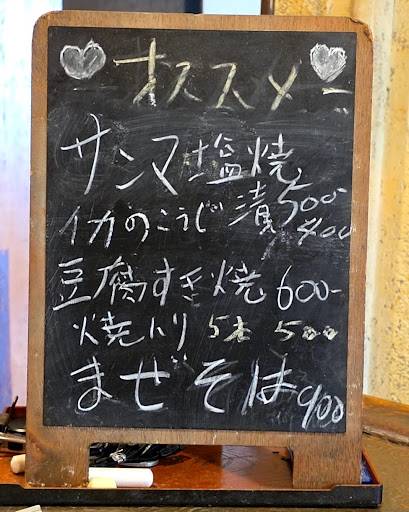 オススメ
サンマ塩焼 500-
イカのこうじ漬 400
豆腐すき焼 600-
焼トリ 5本 500
まぜそば 900